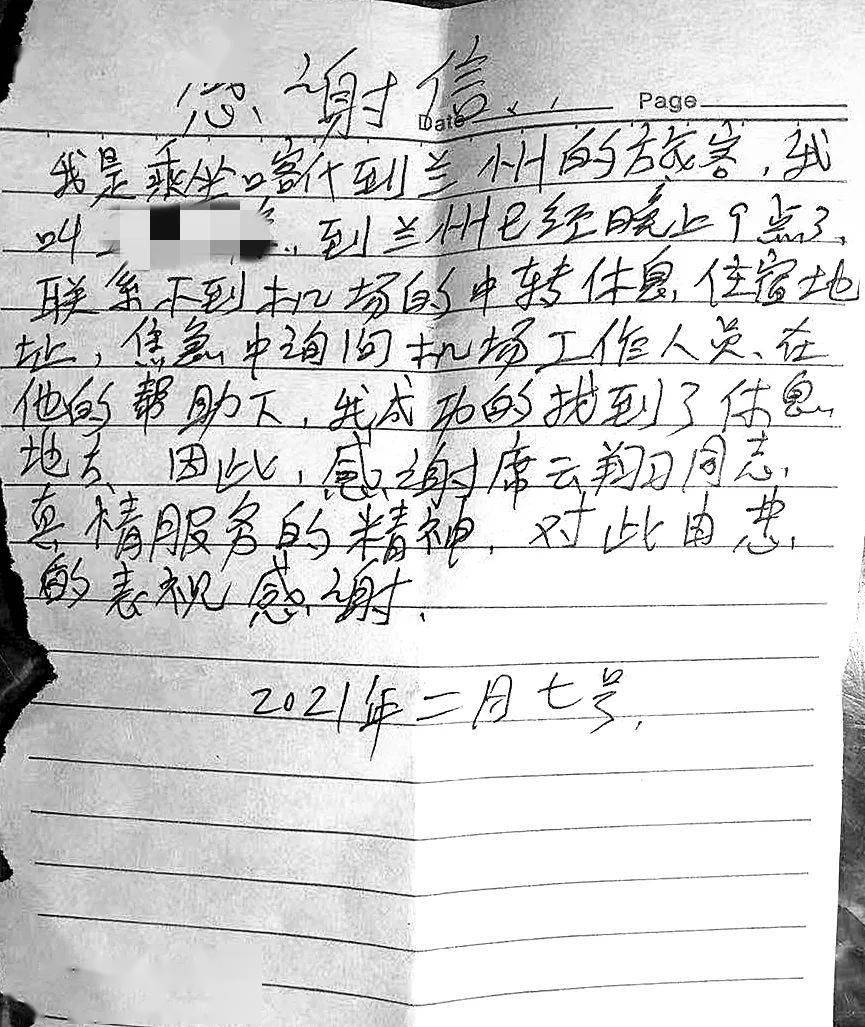 感谢信
Date Page
我是乘坐喀什到兰州的旅客，我
叫 到兰州已经晚上9点了，
联系不到机场的中转休息住宿地
址，焦急中询问机场工作人员、在
他的帮助下，我成功的找到了休息
地方、因此，感谢席云翔同志，
真情服务的精神，对此由衷
的表视感谢，
2021年二月七号，